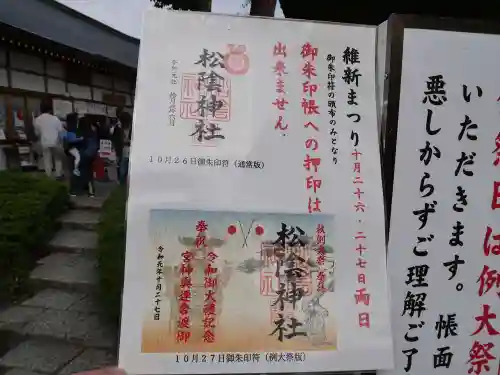 維新まつり十月二十六・二十七日両日
御朱印符の頒布のみとなり
御朱印帳への押印は
出来ません。
令和元年
松陰神社
10月26日御朱印符（通常版）
松陰神社
奉祝
令和御大禮記念
宮神輿還御
令和元年十月二十七日
10月27日御朱印符（大祭版）
は例大祭
いただきます。
帳面
悪しからずご理解
ご了